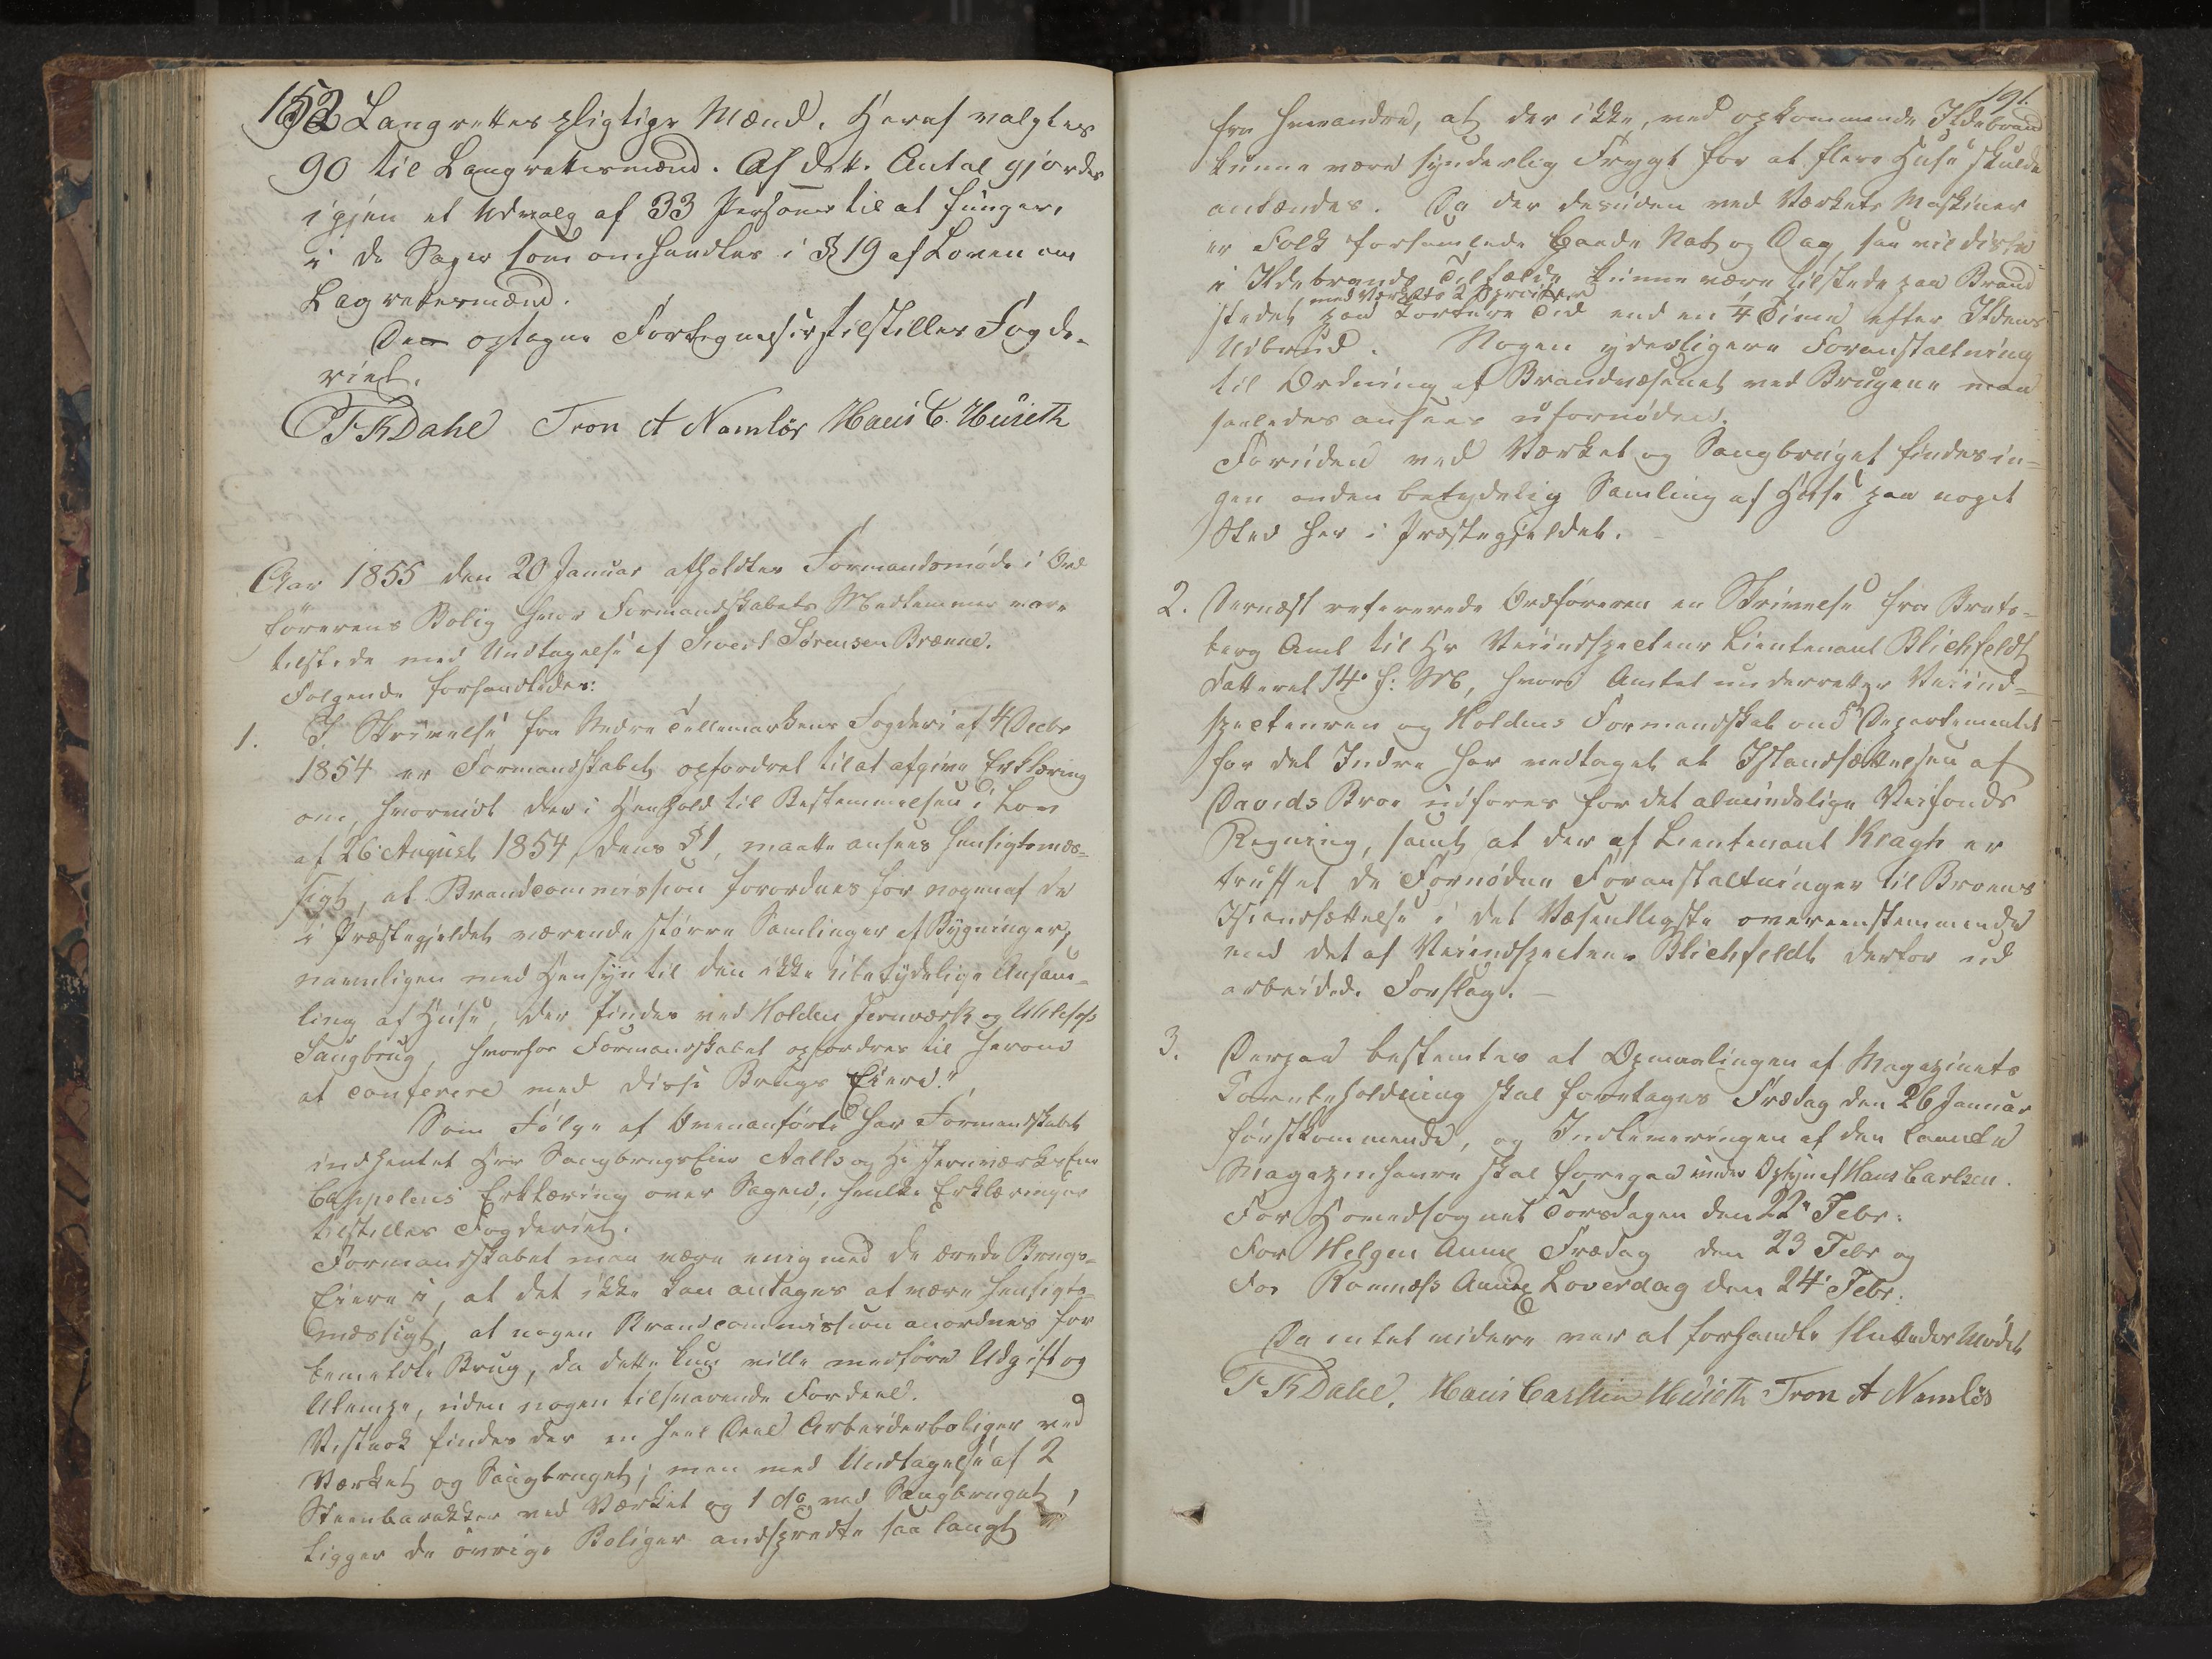 152 Laugrettespligtige Mænd. Heraf valgtes
90 til Laugrettesmænd. Af dette Antal gjordes
igjen et Udvalg af 33 Personer til at fungere
i de Sager som omhandles i § 19 af Loven om
Lagrettesmænd.
Den optagne Fortegnelse tilstilles Fogde-
riet.
T K Dahl Tron A Namløs Hans C. Huseth
Aar 1855 den 20 Januar afholdtes Formandsmøde i Ord
førerens Bolig hvor Formandskabets Medlemmer vare
tilstede med Undtagelse af Sivert Sørensen Brænne.
Følgende forhandledes:
1. I Skrivelse fra Nedre Tellemarkens Fogderi af 4 Decbr
1854 er Formandskabet opfordret til at afgive Erklæring
om, hvorvidt der i Henhold til Bestemmelsen i Lov
af 26 August 1854, dens § 1, maatte ansees hensigtsmæs-
sigt, at Brandcommission forordnes for nogen af de
i Præstegjeldet værende større Samlinger af Bygninger,
navnligen med Hensyn til den ikke ubetydelige Ansam-
ling af Huse, der findes ved Holden Jernværk og Ulefoss
Saugbrug, hvorfor Formandskabet opfordres til herom
at conferere med disse Brugs Eiere."
Som Følge af Ovenanførte har Formandskabet
indhentet Hrr Saugbrugseier Aalls og Hr Jernværkseier
Cappelens Erklæring over Sagen, hvilke Erklæringer
tilstilles Fogderiet.
Formandskabet maa være enig med de ærede Brugs-
Eiere i, at det ikke kan antages at være hensigts-
mæssigt, at nogen Brandcommission anordnes for
bemeldte Brug, da dette kun ville medføre Udgift og
Ulempe, uden nogen tilsvarende Fordeel.
Vistnok findes der en heel Deel Arbeiderboliger ved
Værket og Saugbruget; men med Undtagelse af 2
Steenbarakker ved Værket og 1 do ved Saugbruget,
ligger de øvrige Boliger adspredte saa langt
191.
fra hverandre, at der ikke, ved opkommende Ildebrand
kunne være synderlig Frygt for at flere Huse skulde
antændes. Da der desuden ved Værkets Maskiner
er Folk forsamlede baade Nat og Dag, saa vil disse
i Ildebrands Tilfælde kunne være tilstede paa Brand-
med Værkets 2 Sprøiter
stedet paa kortere Tid end en ¼ Time efter Ildens
Udbrud. Nogen yderligere Foranstaltning
til Ordning af Brandvæsenet ved Brugene maa
saaledes ansees ufornøden.
Foruden ved Værket og Saugbruget findes in-
gen anden betydelig Samling af Huse paa noget
Sted her i Præstegjeldet.
2. Dernæst refererede Ordføreren en Skrivelse fra Brats-
berg Amt til Hr Veiindspecteur Lieutenant Blichfeldt
datteret 14de h: M, hvori Amtet underretter Veiind-
specteuren og Holdens Formandskab om at Departementet
for det Indre har vedtaget at Istandsættelsen af
Davids Broe udføres for det almindelige Veifonds
Regning, samt at der af Lieutenant Kragh er
truffet de Fornødne Foranstaltninger til Broens
Istandsættelse i det Væsentligste overeenstemmende
med det af Veiindspecteur Blichfeldt derfor ud
arbeidede Forslag. —
3. Derpaa bestemtes at Opmaalingen af Magazinets
Kornbeholdning skal foretages Fredag den 26 Januar
førstkommende, og Indleveringen af den laante
Magazinhavre skal foregaa under Opsyn af Hans Carlsen.
For Hovedsognet Torsdagen den 22de Febr:
For Helgen Annex Fredag den 23 Febr og
For Romnæss Annex Løverdag den 24de Febr:
Da intet videre var at forhandle sluttedes Mødet
T K Dahl. Hans Carlsen Huseth Tron A Namløs